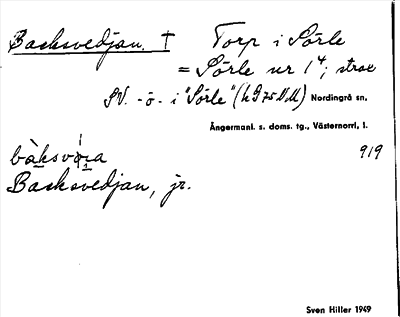 Backsvedjan. † Torp i Sörle
= Sörle nr 1⁴; strax
SV. -ö- i "Sörle" (h 9 75 N.M) Nordingrå sn,
Ångermanl. s. doms. tg., Västernorrl, l.
919
Backsvedjan, jr.
Sven Hiller 1949